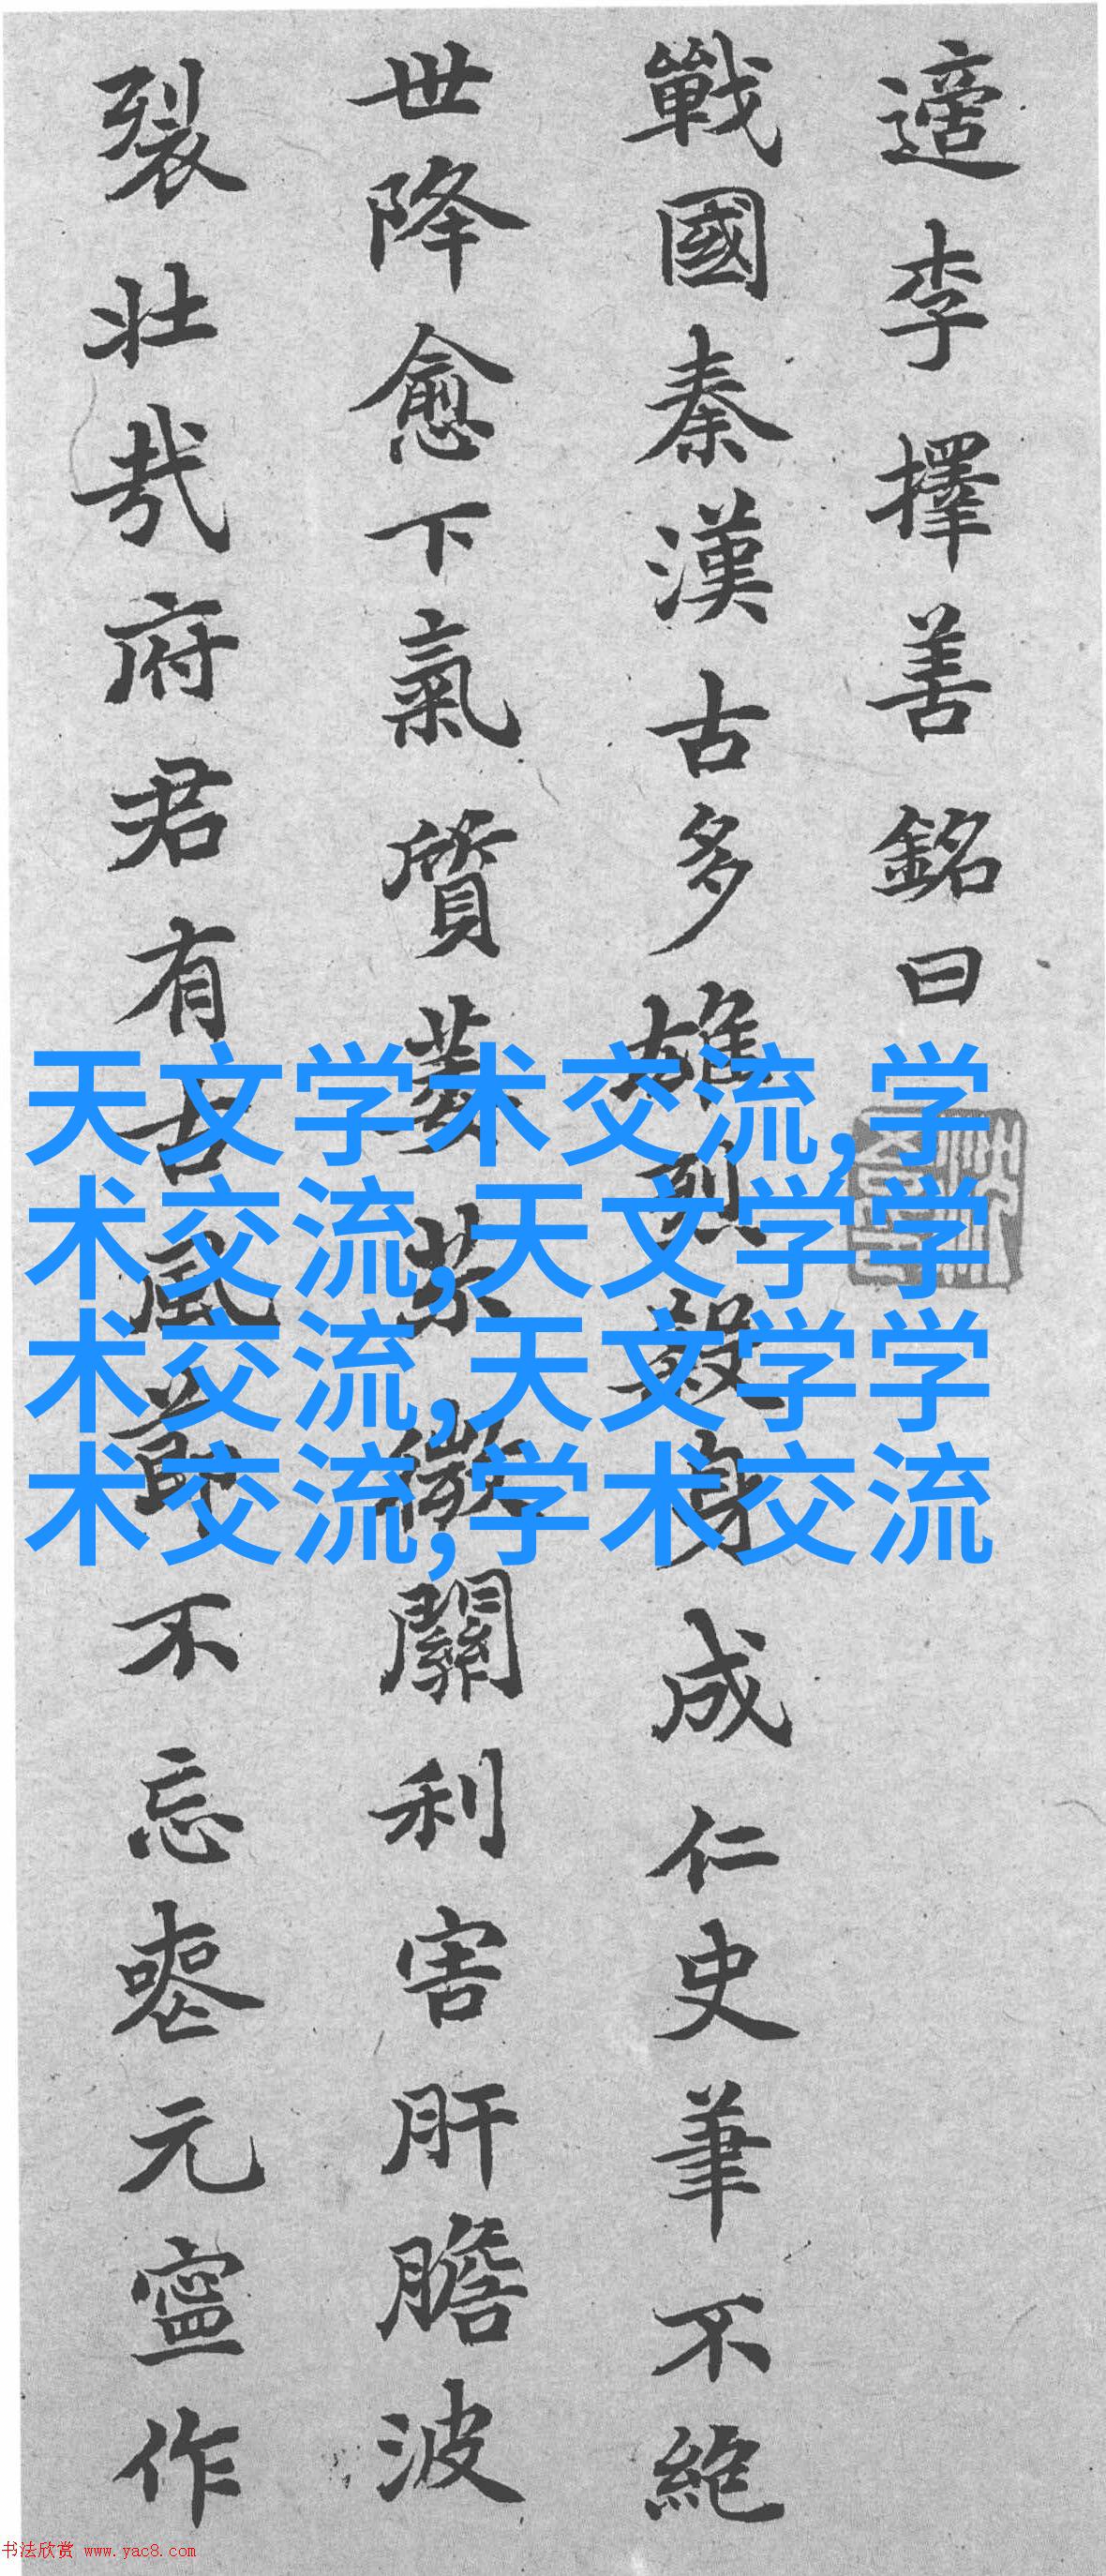 適李擇善銘曰
戰國秦漢古多雄烈殺身成仁史筆不絕
世降愈下氣質萎苶微關利害肝膽波
裂壯哉府君有古風節不忘喪元寧作
天文学术交流,学
术交流,天文学学
术交流,天文学学
术交流,学术交流
书法欣赏 www.yac8.com